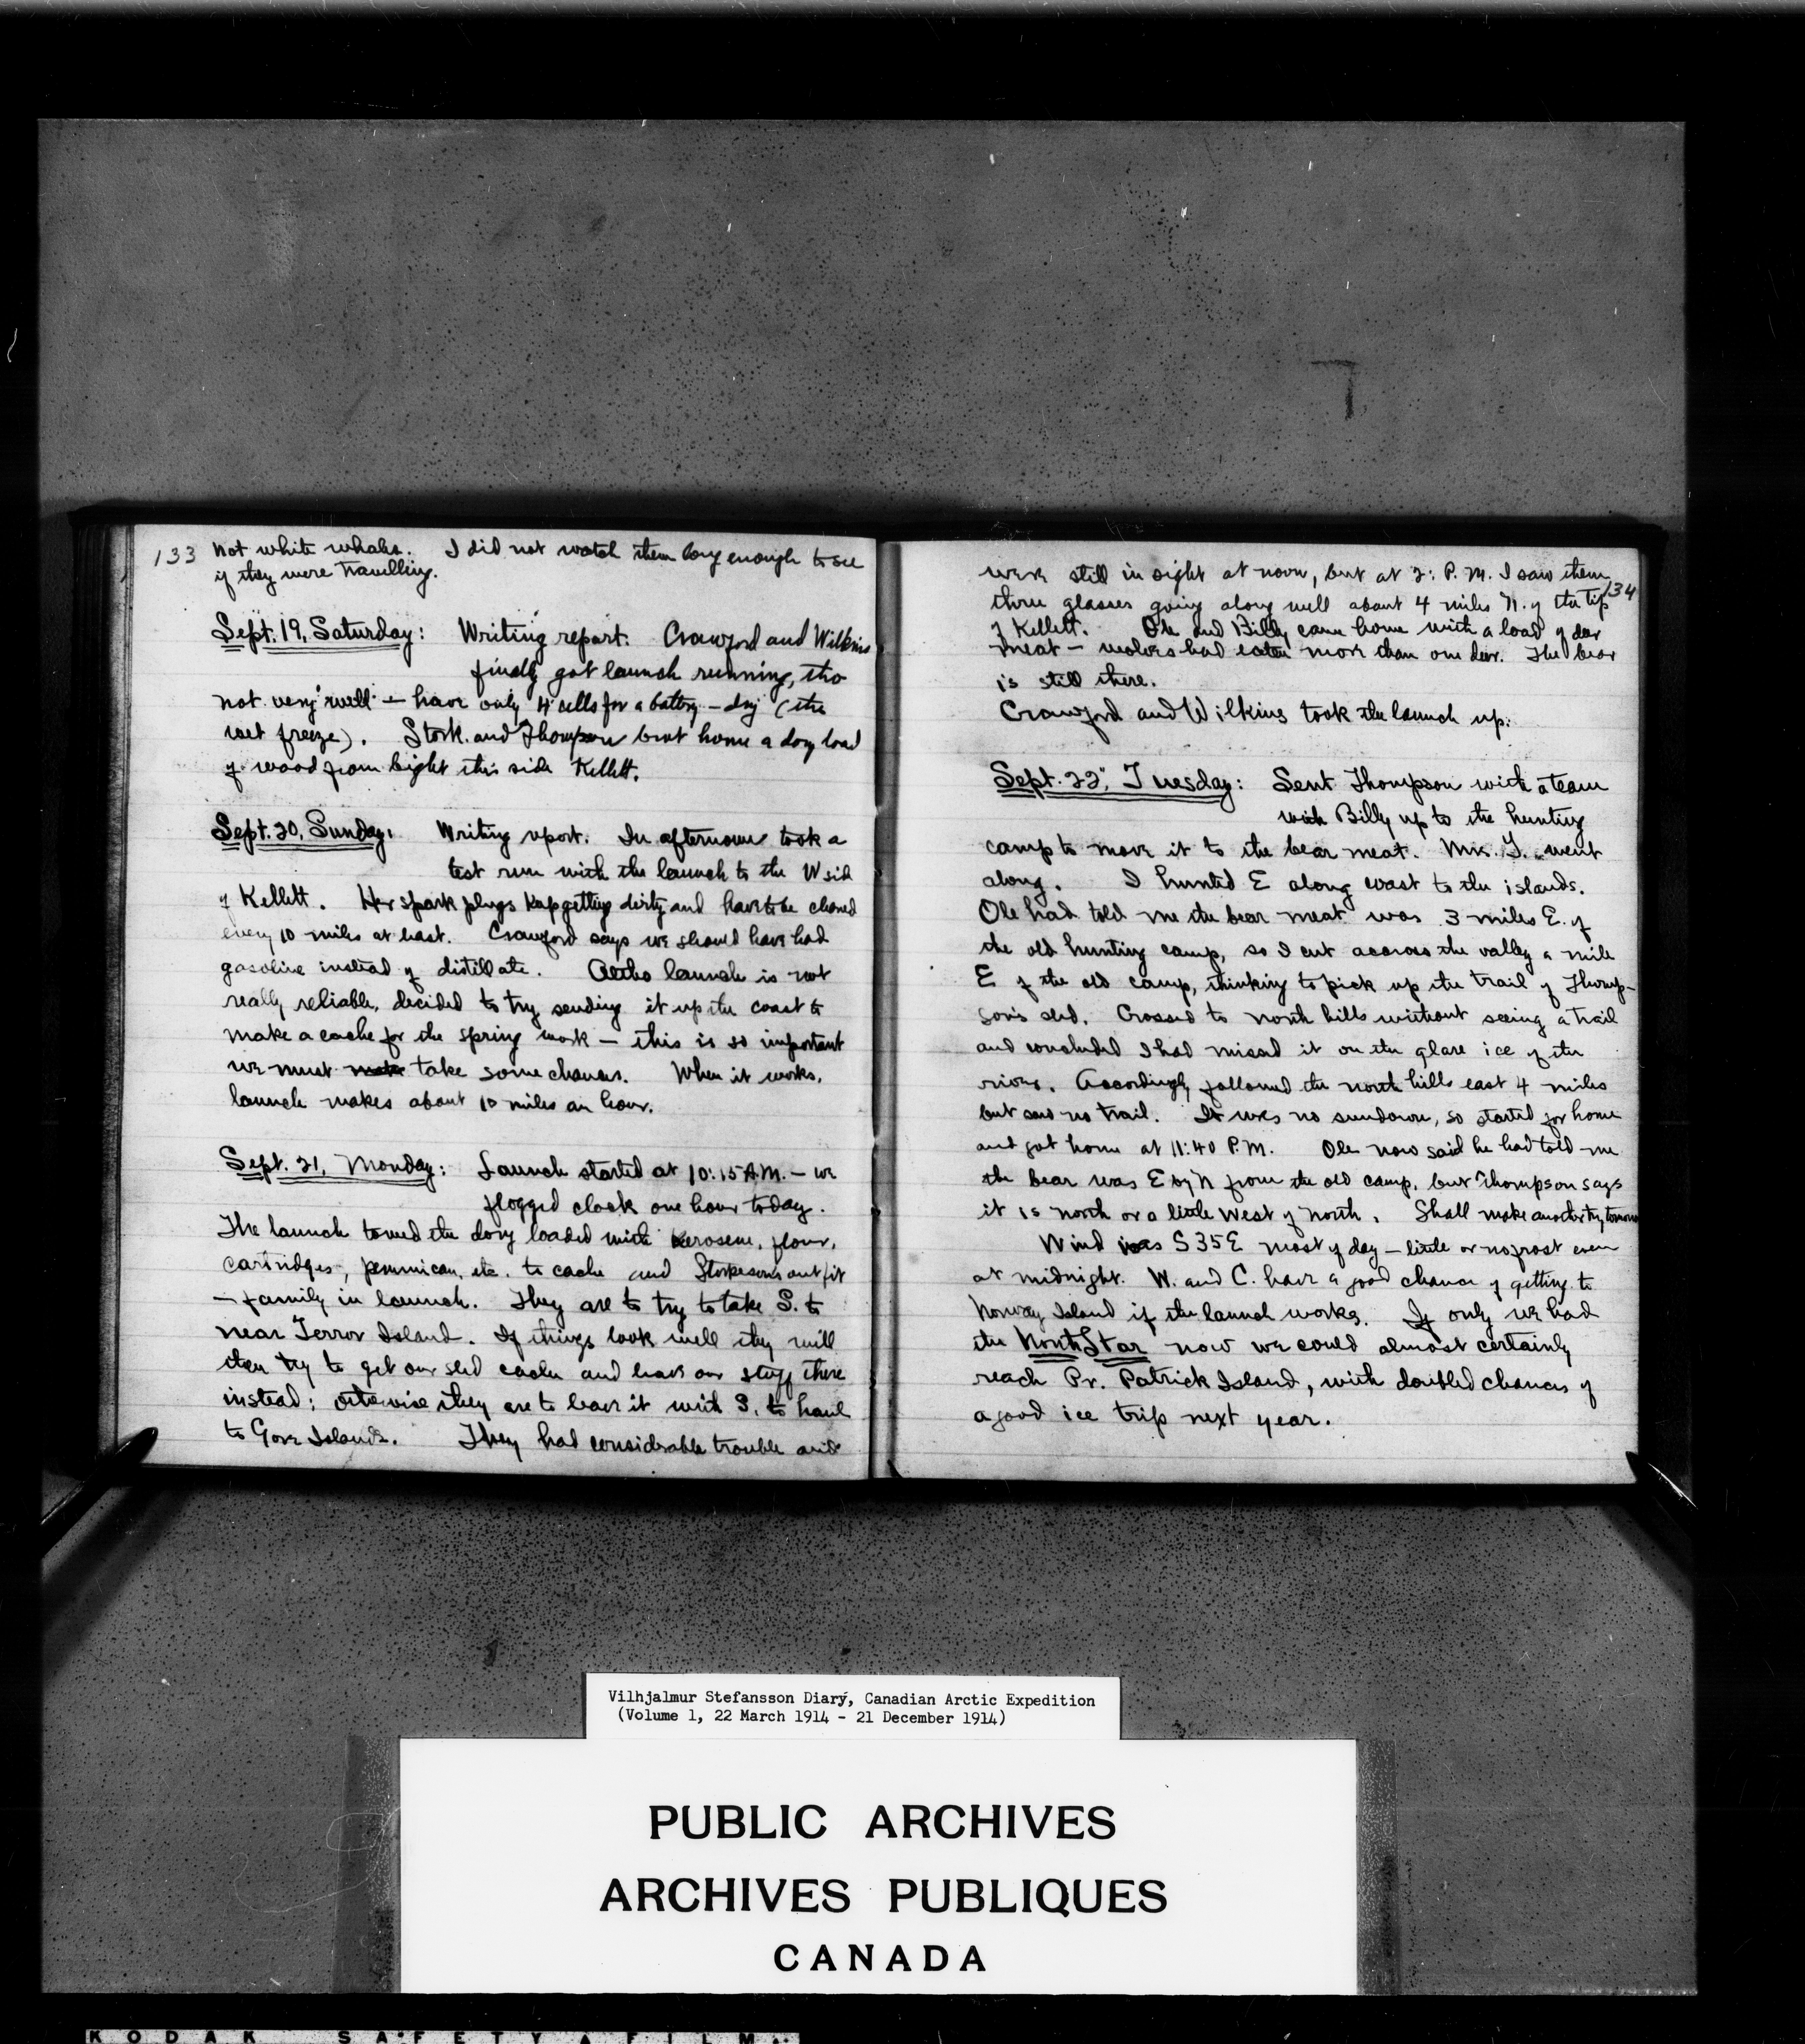 133
not white whales. I did not watch them long enough to see
if they were travelling.
Sept. 19, Saturday: Writing report. Crawford and Wilkins
finally got launch running, tho
not very well – have only 4 cells for a battery – dry (the
wet freeze). Stork. and Thompson brot home a dory load
of wood from bight this side Kellett.
Sept. 20, Sunday: Writing report. In afternoon took a
test run with the launch to the W side
of Kellett. Her spark plugs keep getting dirty and have to be cleaned
every 10 miles at least. Crawford says we should have had
gasoline instead of distillate. Altho launch is not
really reliable, decided to try sending it up the coast to
make a cache for the spring work – this is so important
we must take some chances. When it works,
launch makes about 10 miles an hour.
Sept. 21, Monday: Launch started at 10:15 A.M. – we
flogged clock one hour today.
The launch towed the dory loaded with kerosene, flour,
cartridges, pemmican, etc. to cache and Storkeson's outfit
– family in launch. They are to try to take S. to
near Terror Island. If things look well they will
then try to get our sled cache and leave our stuff there
instead; otherwise they are to leave it with S. to haul
to Gore Islands. They had considerable trouble and
134
were still in sight at noon, but at 2: P.M. I saw them
thru glasses going along well about 4 miles N. of the tip
of Kellett. Ole and Billy came home with a load of deer
meat – wolves had eaten more than one deer. The bear
is still there.
Crawford and Wilkins took the launch up.
Sept. 22, Tuesday: Sent Thompson with a team
with Billy up to the hunting
camp to move it to the bear meat. Mrs. T. went
along. I hunted E along coast to the islands.
Ole had told me the bear meat was 3 miles E. of
the old hunting camp, so I cut accross the valley a mile
E of the old camp, thinking to pick up the trail of Thomp-
son's sled. Crossed to north hills without seeing a trail
and concluded I had missed it on the glare ice of the
river. Accordingly followed the north hills east 4 miles
but saw no trail. It was no sundown, so started for home
and got home at 11:40 P.M. Ole now said he had told me
the bear was E by N from the old camp, but Thompson says
it is north or a little west of north. Shall make another try tomorrow
Wind was S 35 E most of day – little or no frost even
at midnight. W. and C. have a good chance of getting to
Norway Island if the launch works. If only we had
the North Star now we could almost certainly
reach Pr. Patrick Island, with doubled chances of
a good ice trip next year.
Vilhjalmur Stefansson Diary, Canadian Arctic Expedition
(Volume 1, 22 March 1914 - 21 December 1914)
PUBLIC ARCHIVES
ARCHIVES PUBLIQUES
CANADA
KODAK SAFETY FILM